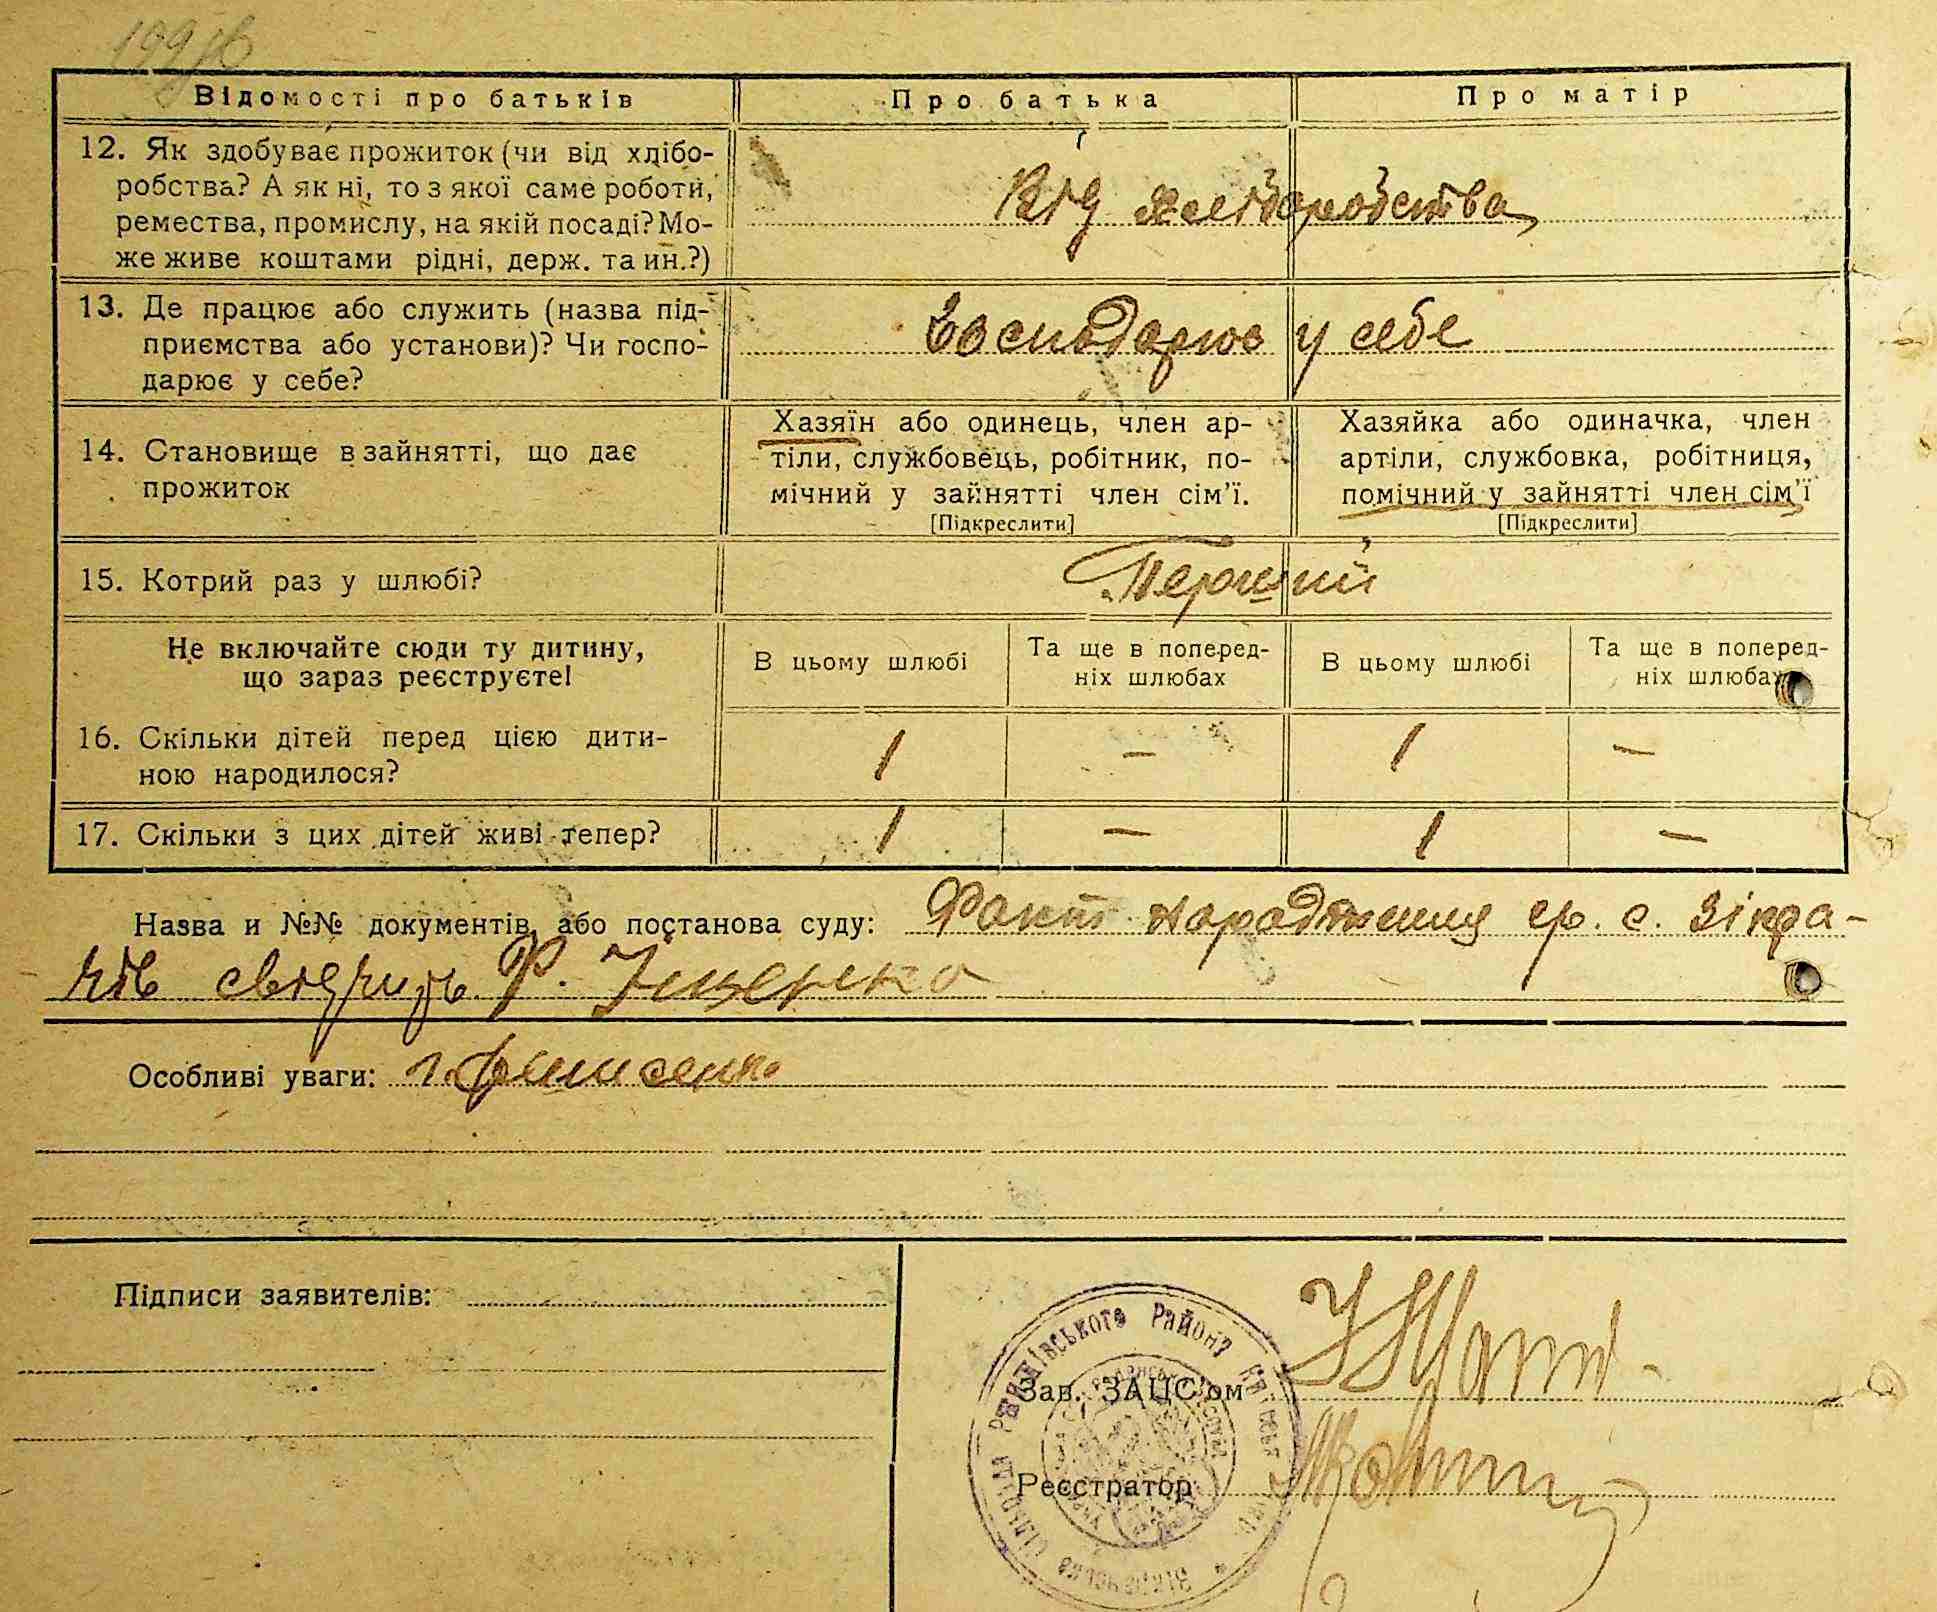 109 зв
Відомості про батьків
Про батька
Про матір
12. Як здобуває прожиток (чи від хлібо-
робства? А як ні, то з якої саме роботи,
ремества, промислу, на якій посаді? Мо-
же живе коштами рідні, держ. та ин.?)
Від хліборобства
13. Де працює або служить (назва під-
приємства або установи)? Чи госпо-
дарює у себе?
Господарює у себе
14. Становище в зайнятті, що дає
прожиток
Хазяїн або одинець, член ар-
тіли, службовець, робітник, по-
мічний у зайнятті член сім'ї.
[Підкреслити]
Хазяйка або одиначка, член
артіли, службовка, робітниця,
помічний у зайнятті член сім'ї
[Підкреслити]
15. Котрий раз у шлюбі?
Перший
Не включайте сюди ту дитину,
що зараз реєструєте!
В цьому шлюбі
Та ще в поперед-
ніх шлюбах
В цьому шлюбі
Та ще в поперед-
ніх шлюбах
16. Скільки дітей перед цією дити-
ною народилося?
1 – 1 –
17. Скільки з цих дітей живі тепер?
1 – 1 –
Назва и №№ документів, або постанова суду: Факт народження гр. с. Зікра-
чів свідчить Ф. Іщенко
Особливі уваги:
Підписи заявителів:
Зав. ЗАЦС'ом
Реєстратор